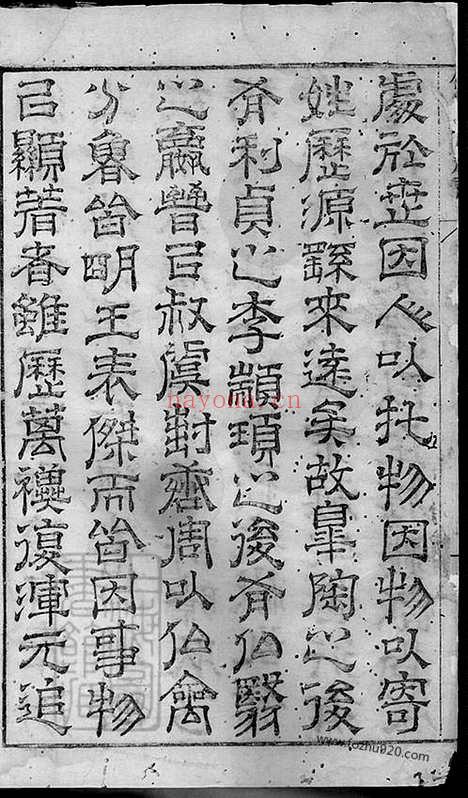 處於世因人以托物因物以寄
姓歷源繇來遠矣故皐陶之後
有利貞之李顓頊之後有伯翳
之嬴晉㠯叔虞封齊周以伯禽
分魯皆明王表傑而皆因事物
㠯顯著者雖歷萬禩復渾元追
nayona.cn
www.fozhu920.com